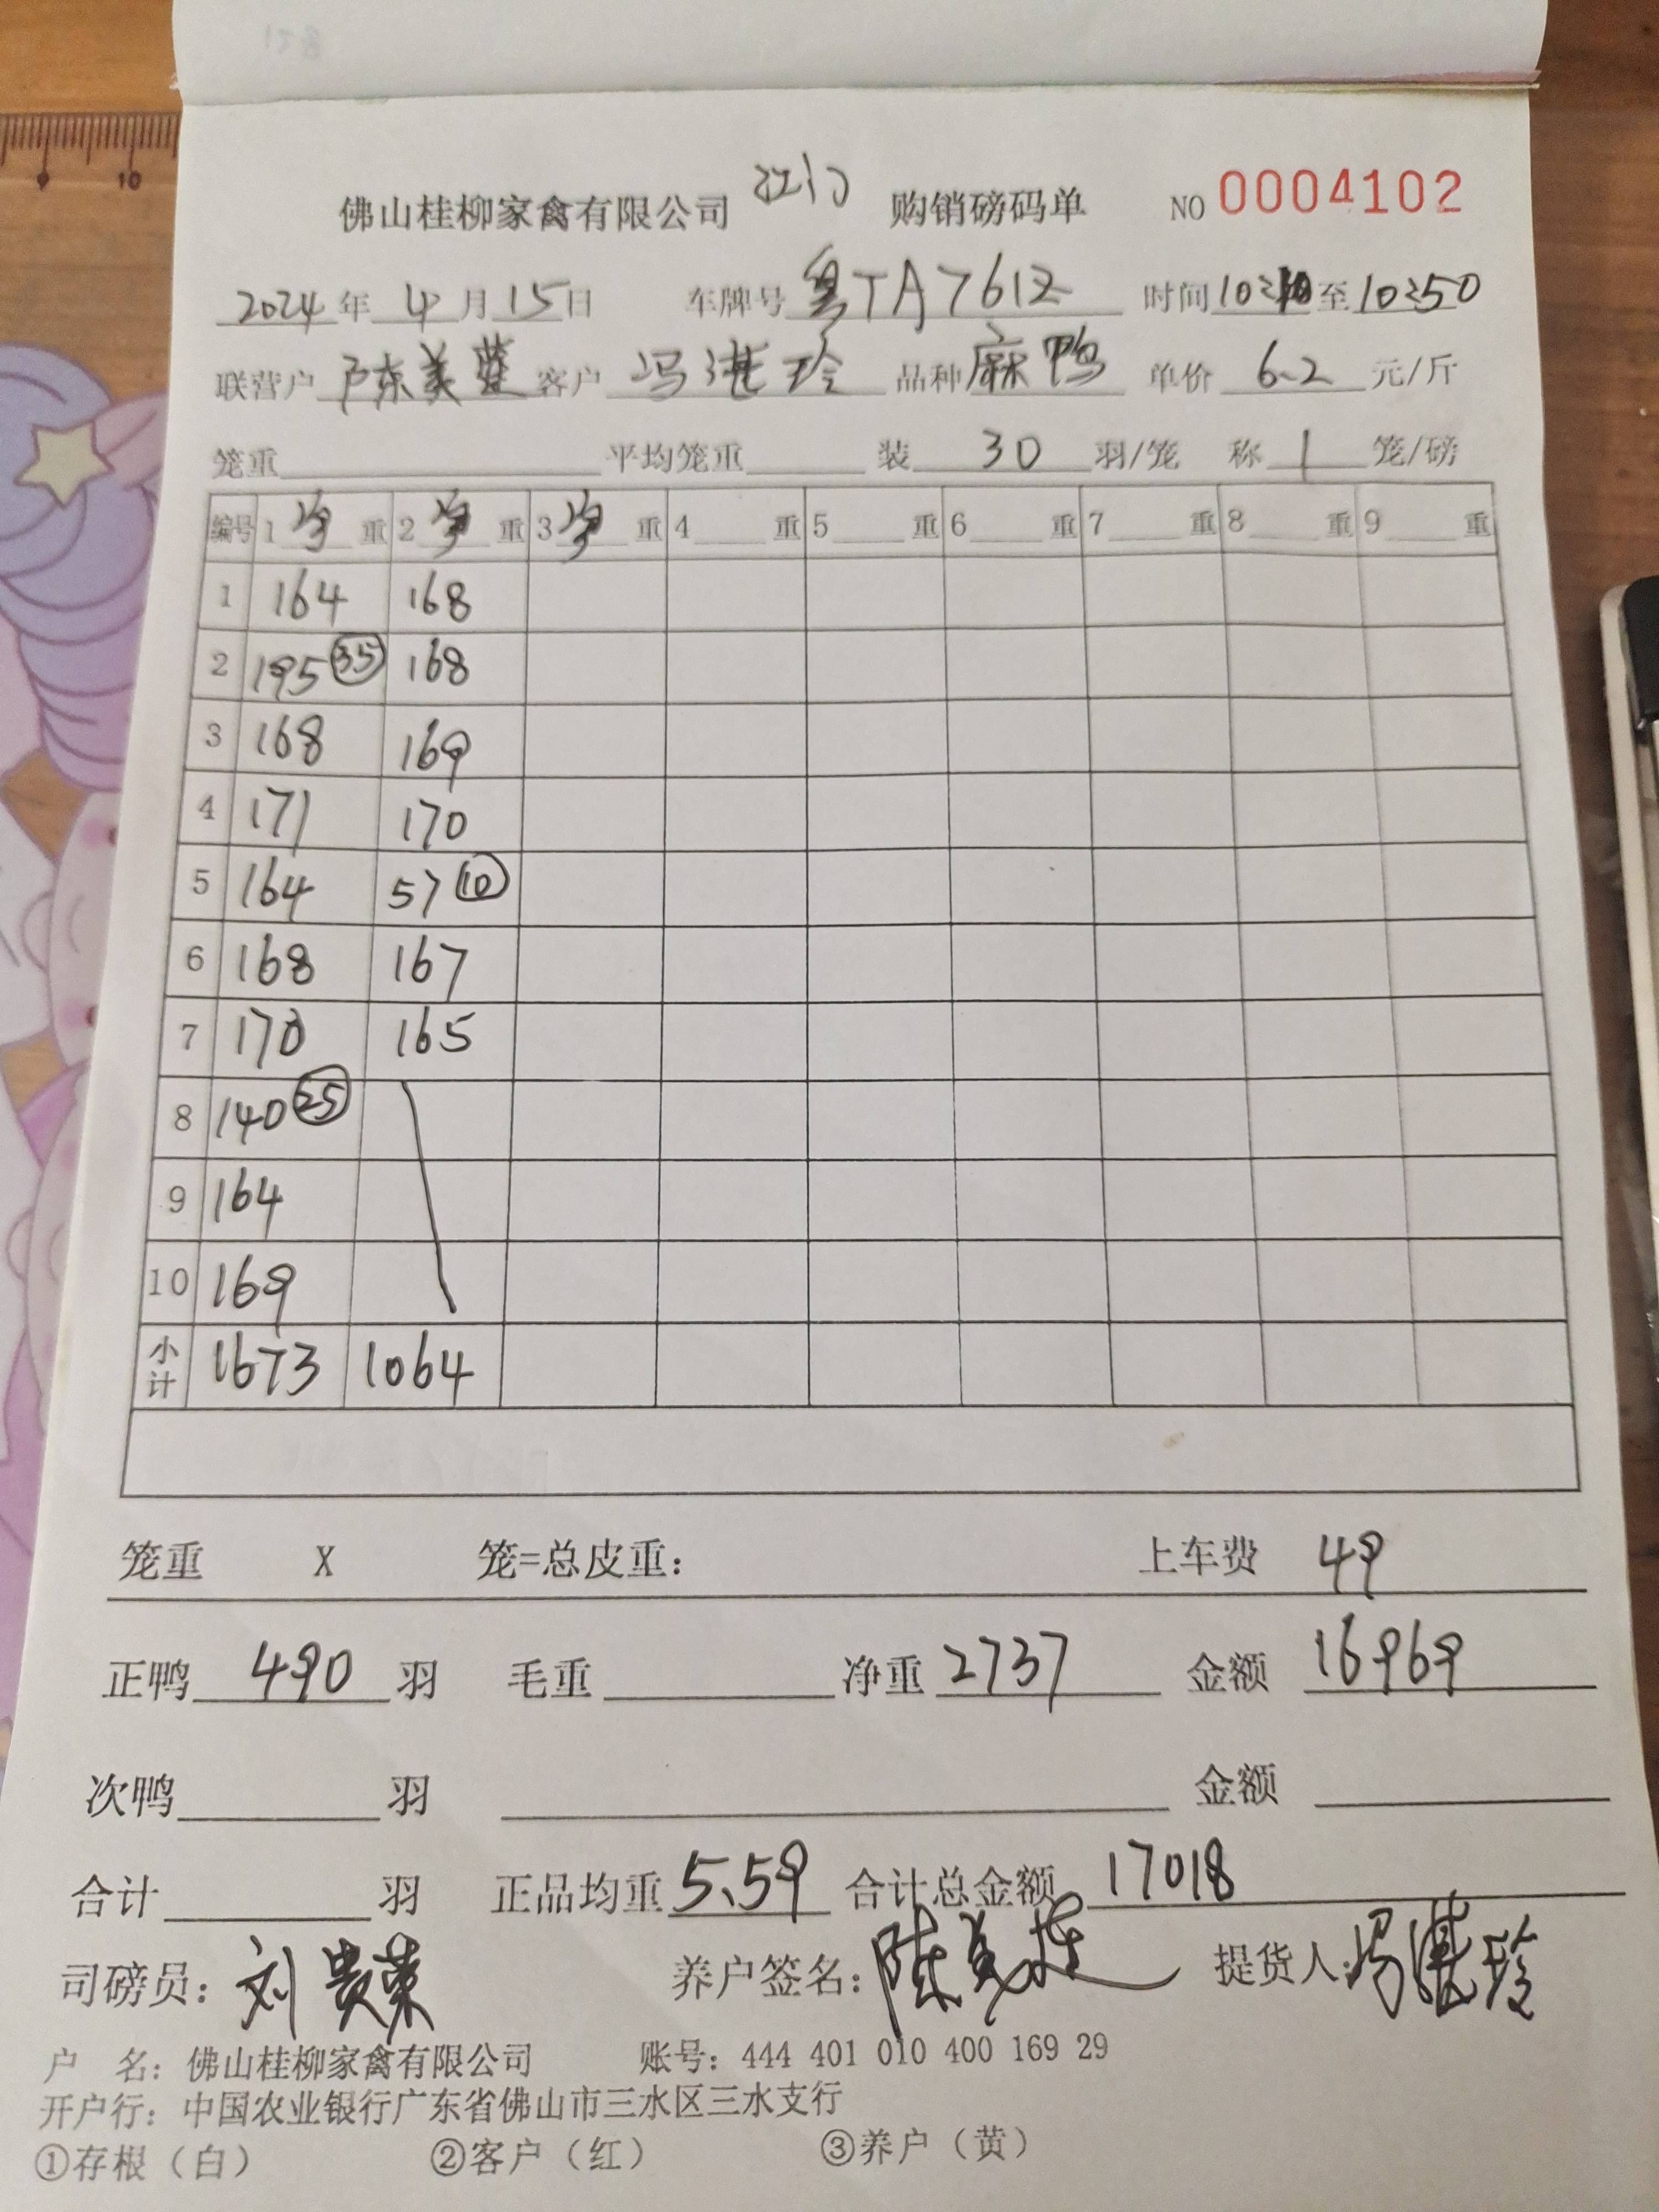 佛山桂柳家禽有限公司 江门 购销磅码单 NO 0004102
2024年 4月 15日 车牌号 粤TA7612 时间 10:10 至 10:50
联营户 陈美莲 客户 冯湛玲 品种 麻鸭 单价 6.2 元/斤
笼重 平均笼重 装 30 羽/笼 称 1 笼/磅
编号 1 净 重 2 净 重 3 净 重 4 重 5 重 6 重 7 重 8 重 9 重
1 164 168
2 195 (35) 168
3 168 169
4 171 170
5 164 57 (10)
6 168 167
7 170 165
8 140 (25)
9 164
10 169
小计 1673 1064
笼重 X 笼=总皮重: 上车费 49
正鸭 490 羽 毛重 净重 2737 金额 16969
次鸭 羽 金额
合计 羽 正品均重 5.59 合计总金额 17018
司磅员: 刘贵荣 养户签名: 陈美莲 提货人: 冯湛玲
户 名: 佛山桂柳家禽有限公司 账号: 444 401 010 400 169 29
开户行: 中国农业银行广东省佛山市三水区三水支行
①存根（白） ②客户（红） ③养户（黄）